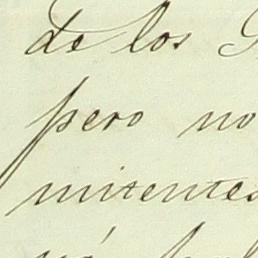 de los
pero no
mitentes